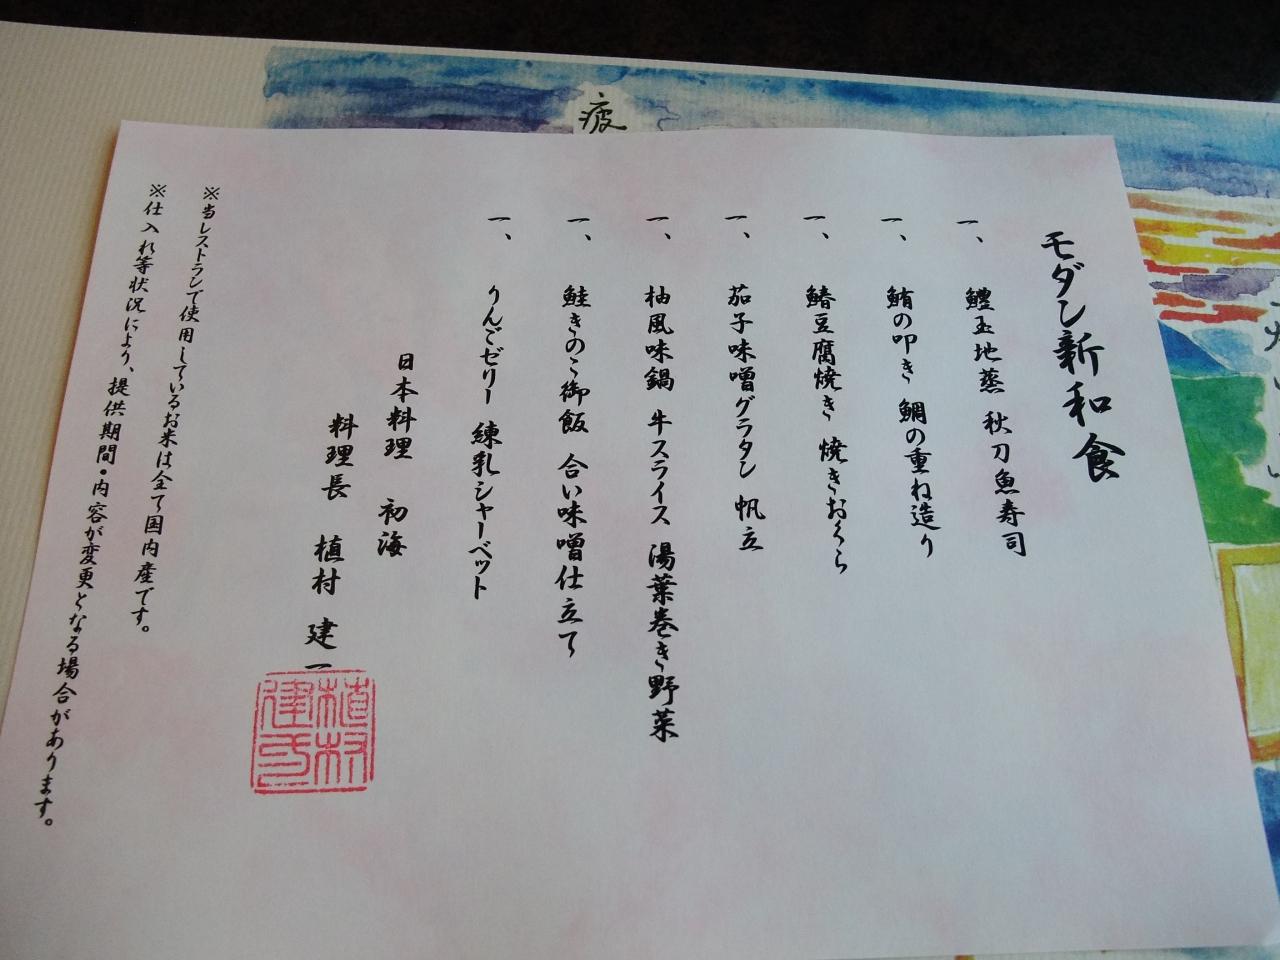 疲
モダン新和食
一、鱧玉地蒸 秋刀魚寿司
一、鮪の叩き 鯛の重ね造り
一、鰆豆腐焼き 焼きおくら
一、茄子味噌グラタン 帆立
一、柚風味鍋 牛スライス 湯葉巻き野菜
一、鮭きのこ御飯 合い味噌仕立て
一、りんごゼリー 練乳シャーベット
日本料理 初海
料理長 植村 建一
植村
※当レストランで使用しているお米は全て国内産です。
※仕入れ等状況により、提供期間・内容が変更となる場合があります。